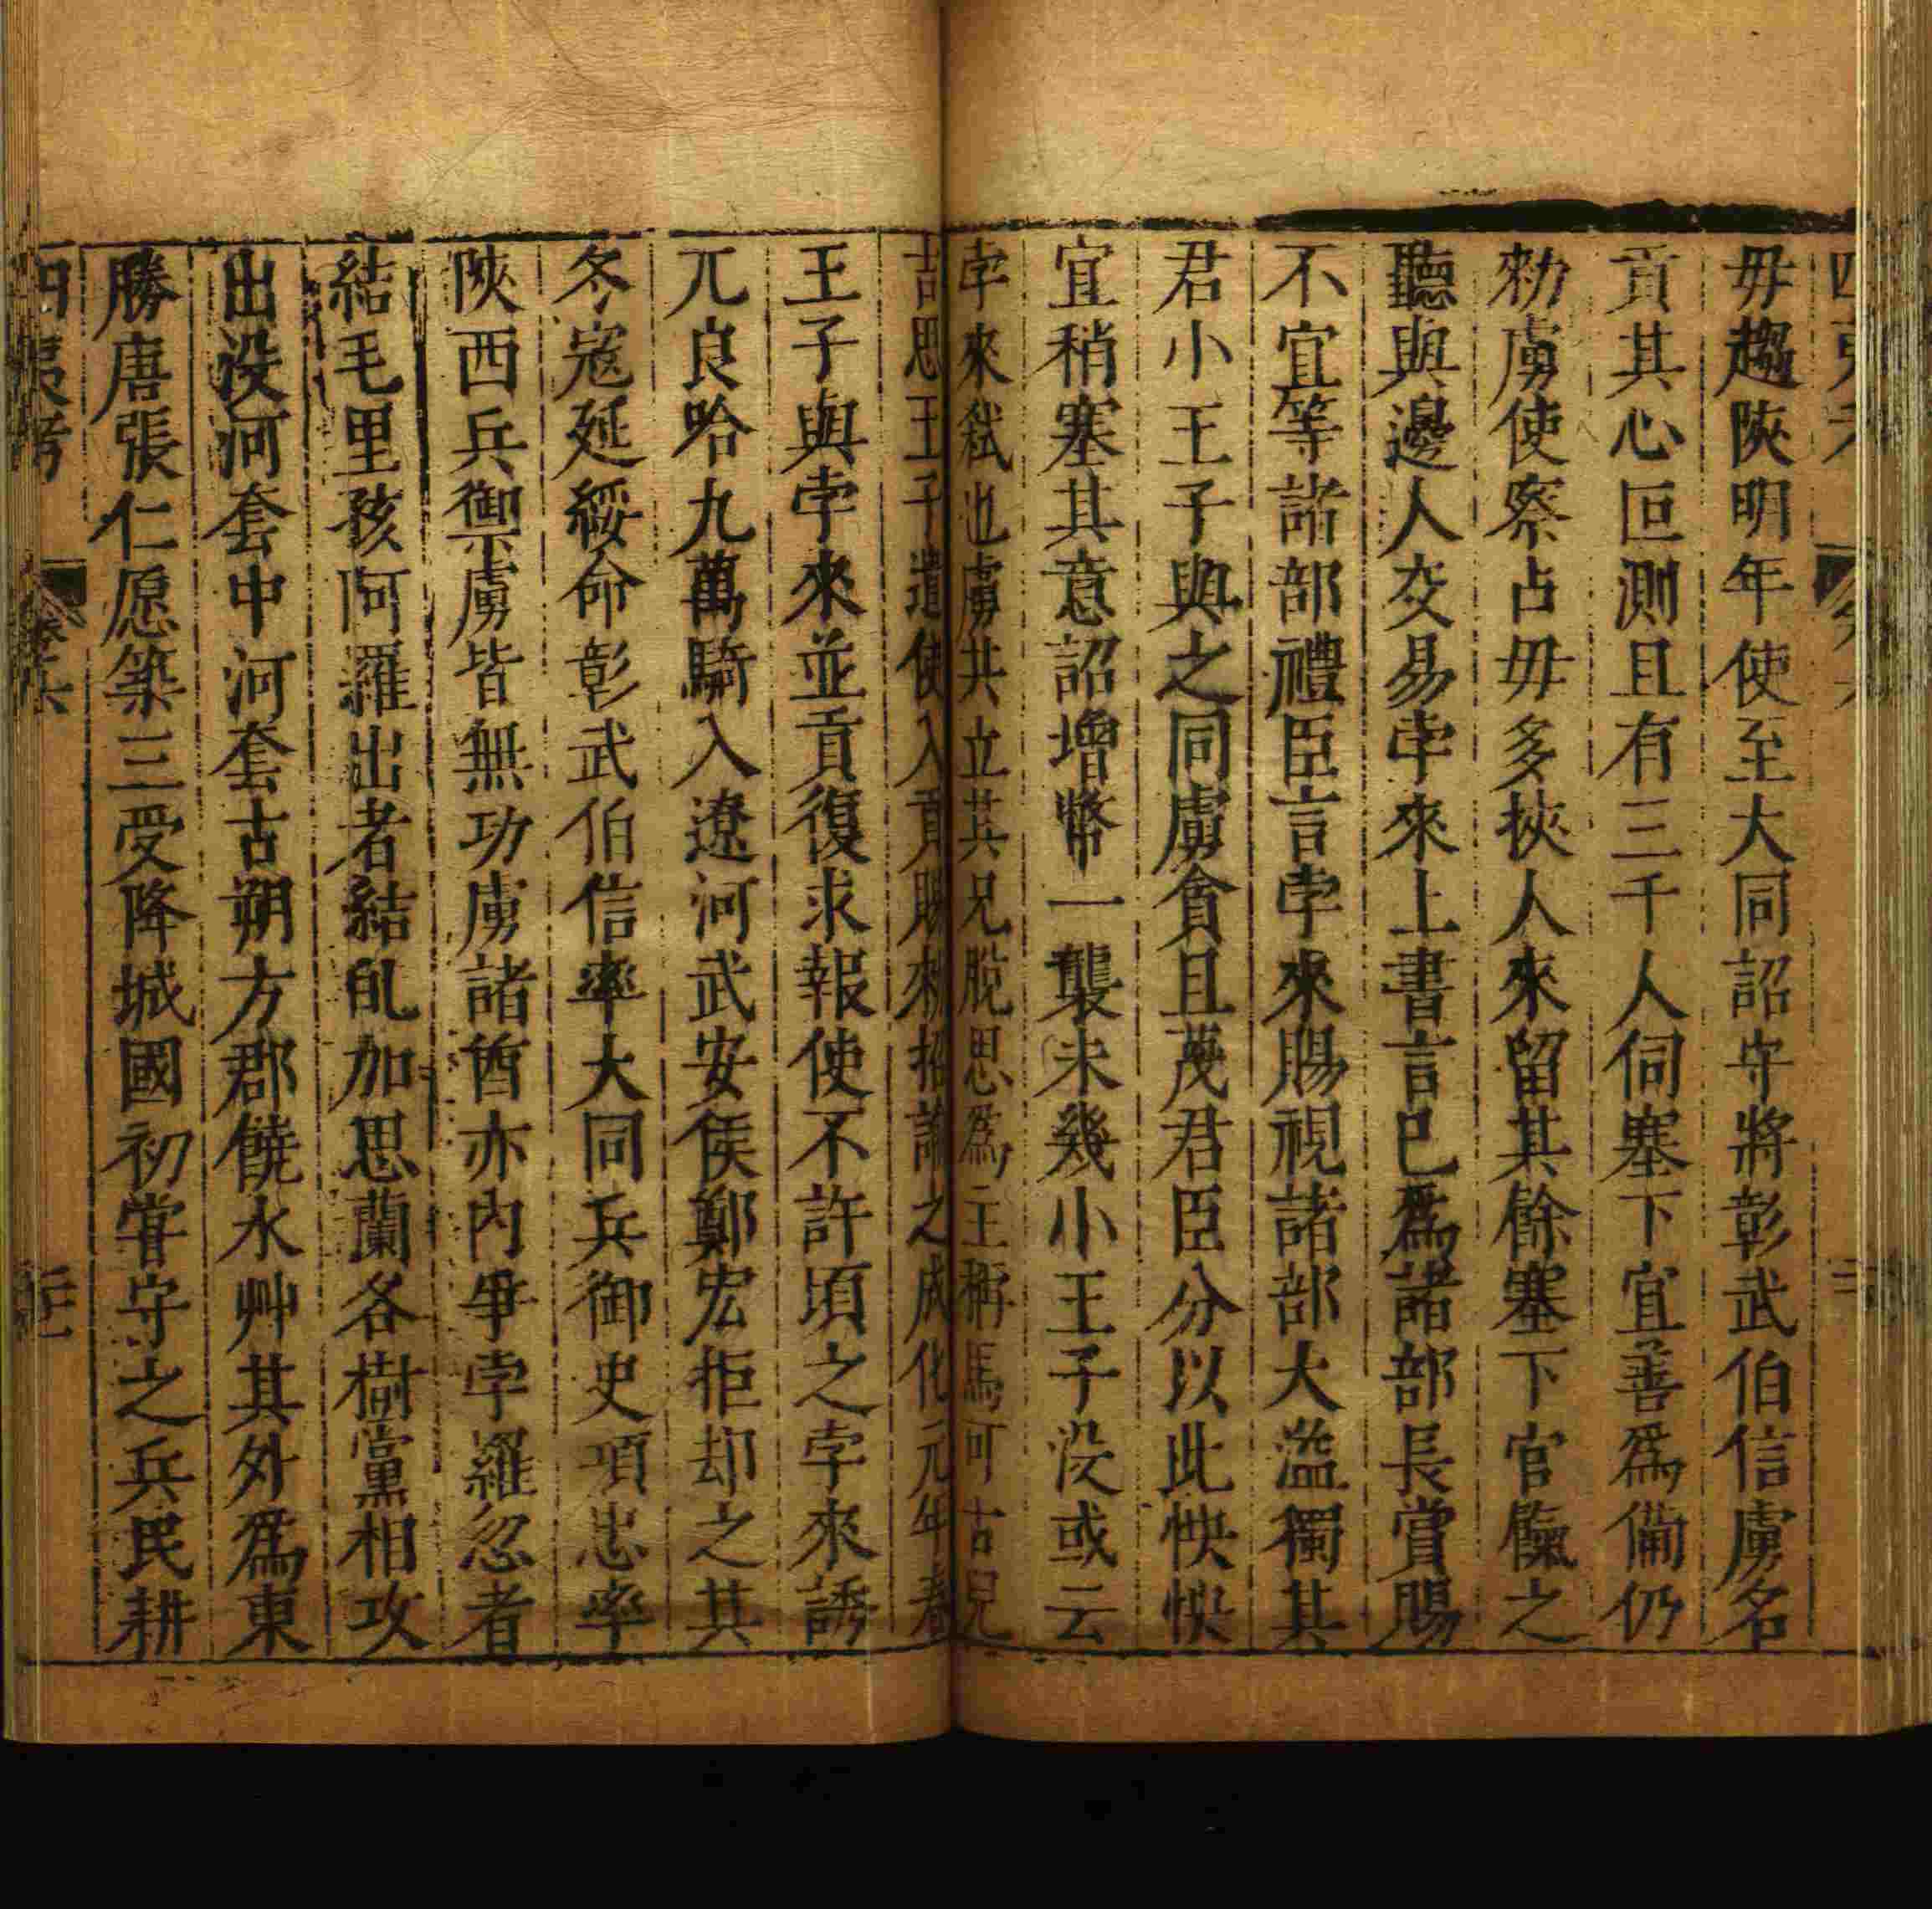 毋趨陝明年使至大同詔守將彰武伯信虜名
貢其心叵測且有三千人伺塞下宜善爲備仍
勑虜使察占毋多挾人來留其餘塞下官饩之
聽與邊人交易孛來上書言已爲諸部長賞賜
不宜等諸部禮臣言孛來賜視諸部大溢獨其
君小王子與之同虜貪且蔑君臣分以此怏怏
宜稍塞其意詔增幣一襲未幾小王子没或云
孛來弑也虜共立其兄脫思爲王稱馬可古兒
吉思王子遣使入貢賜勑招諭之成化元年春
王子與孛來並貢復求報使不許頃之孛來誘
兀良哈九萬騎入遼河武安侯鄭宏拒却之其
冬寇延綏命彰武伯信率大同兵御史項忠率
陝西兵禦虜皆無功虜諸酋亦內爭孛羅忽者
結毛里孩阿羅出者結癿加思蘭各樹黨相攻
出没河套中河套古朔方郡饒水艸其外爲東
勝唐張仁愿築三受降城國初甞守之兵民耕
四夷考 卷六